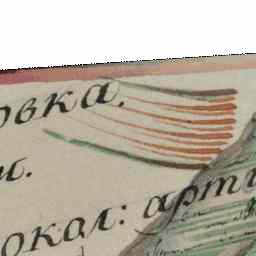 овка.
и.
окол: арти